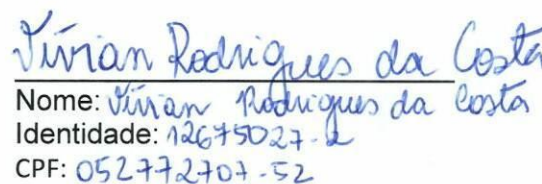 Vívian Rodrigues da Costa
Nome: Vívian Rodrigues da Costa
Identidade: 12675027-2
CPF: 052772707-52